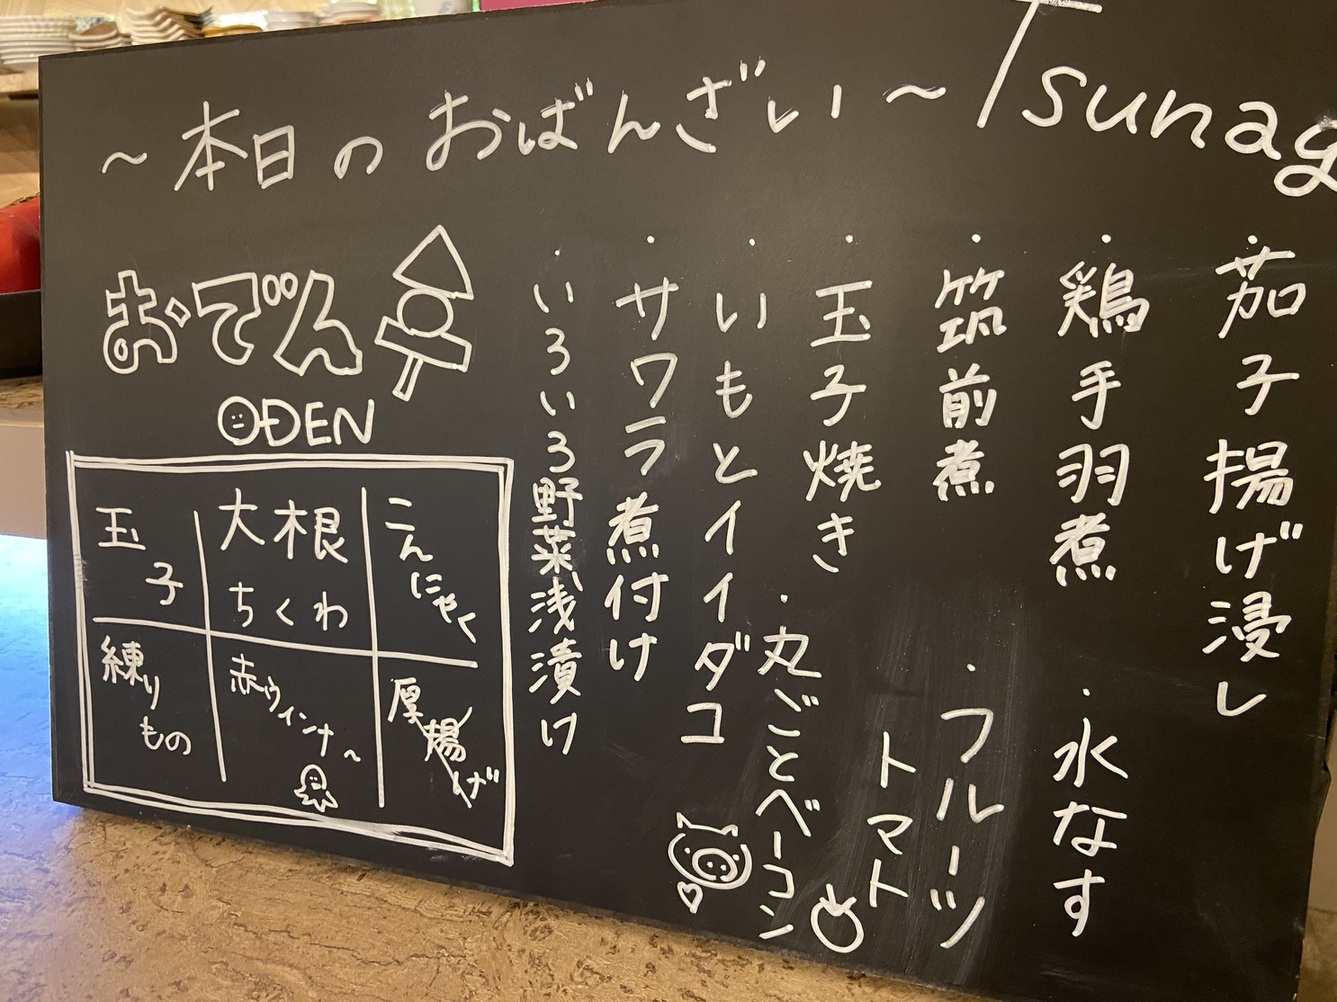 ～本日のおばんざい～ Tsunag
・茄子揚げ浸し
・鶏手羽煮
・水なす
・筑前煮
・フルーツ
トマト
・玉子焼き
・丸ごとベーコン
・いもとイイダコ
・サワラ煮付け
・いろいろ野菜浅漬け
おでん
ODEN
玉子
大根
ちくわ
こんにゃく
練りもの
赤ウィンナ～
厚揚げ